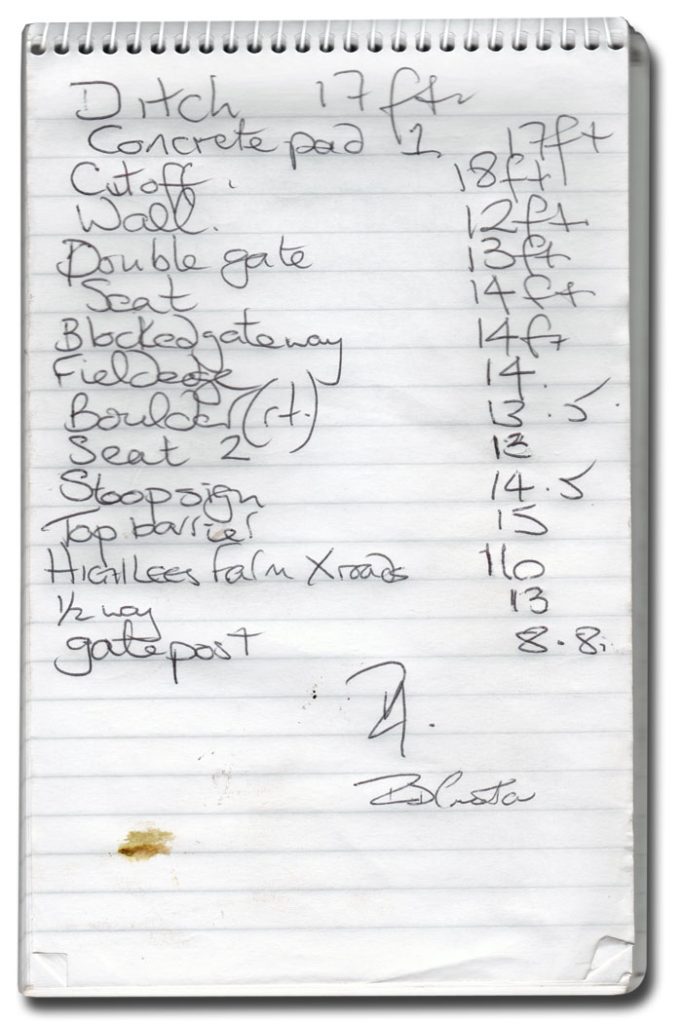 Ditch 17ft
Concrete pad 1 17ft
Cutoff. 18ft
Wall. 12ft
Double gate 13ft
Seat 14ft
Blocked gateway 14ft
Field edge 14.
Boulder (rt.) 13.5
Seat 2
Stoop sign 14.5
Top barrier 15
High Lees Farm X roads 16
1/2 way 13
gatepost 8.8